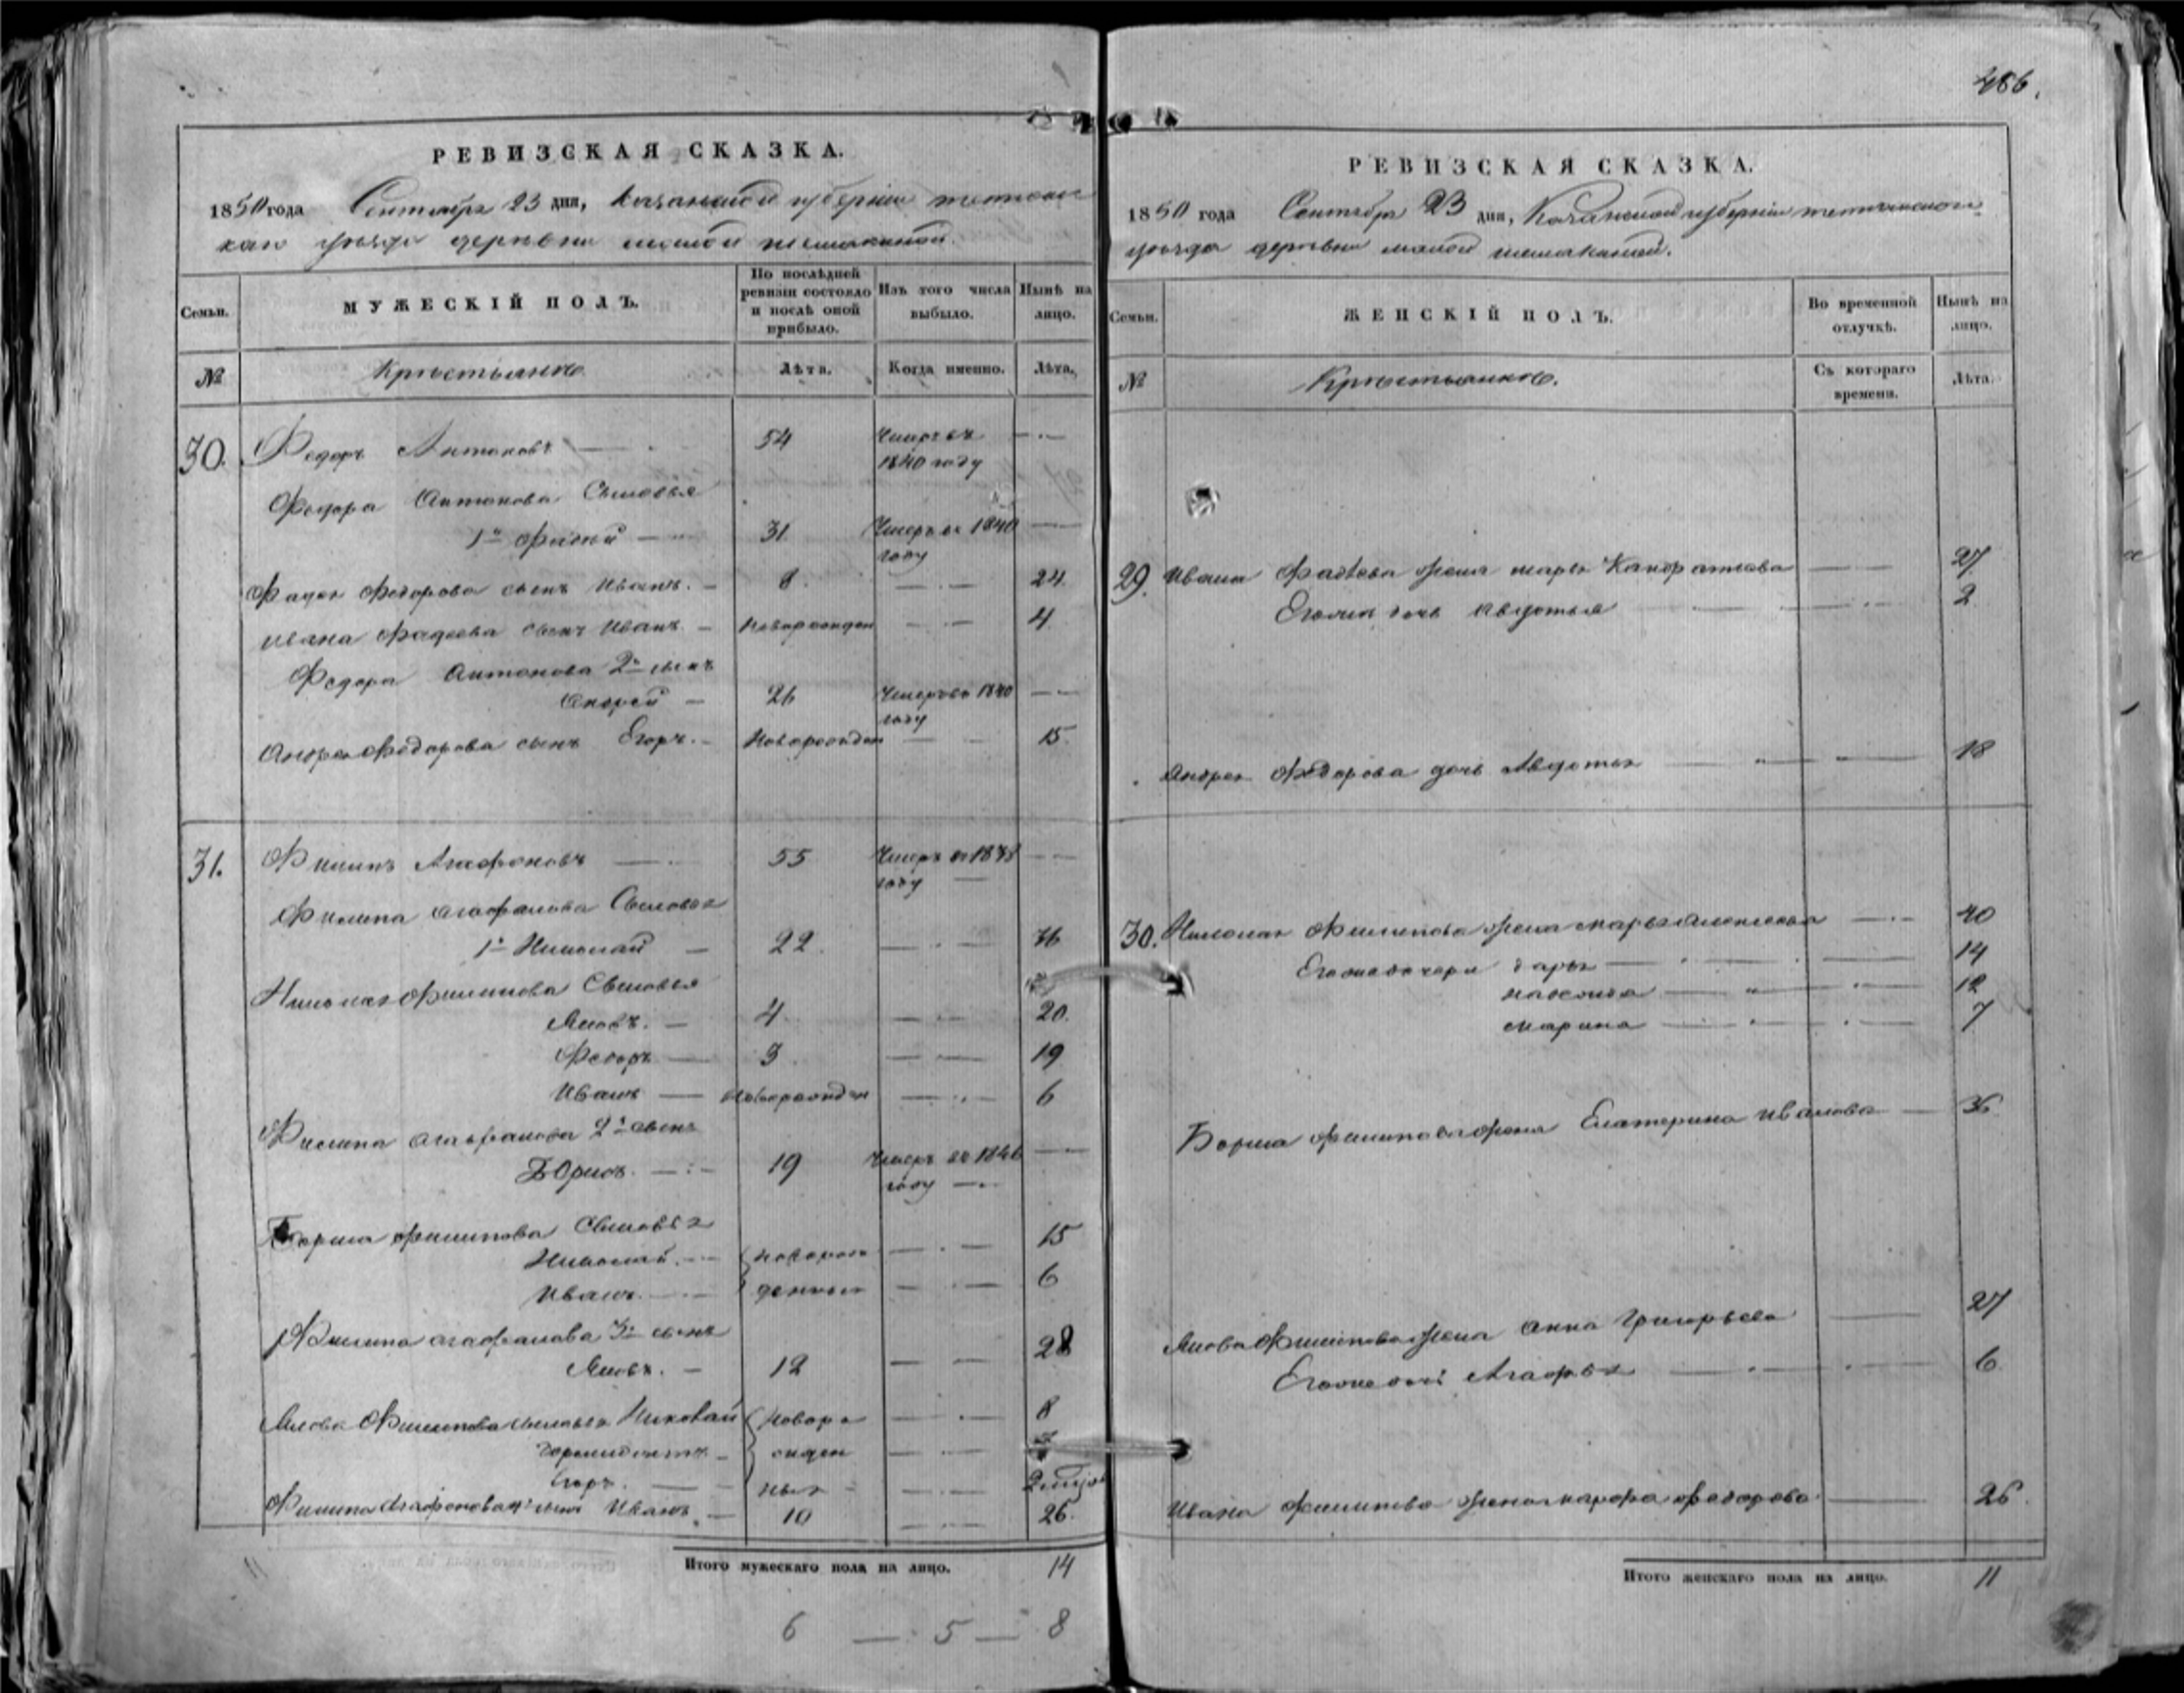 486.
РЕВИЗСКАЯ СКАЗКА.
1850 года Сентября 23 дня, Казанской губернiи тетюш
каго уѣзда деревни малой шемакиной.
Семьи.
МУЖЕСКIЙ ПОЛЪ.
По послѣдней ревизiи состояло и послѣ оной прибыло.
Изъ того числа выбыло.
Нынѣ на лицо.
№
Крѣстьянѣ
Лѣта.
Когда именно.
Лѣта.
30. Федоръ Антоновъ 54 Умеръ въ 1840 году
Федора Антонова Сыновья
1й Фадѣй 31 Умеръ въ 1840 году
Фадея Федорова сынъ Иванъ. 8. 24.
Ивана Фадеева сынъ Иванъ Новорожден 4
Федора Антонова 2й сынъ
Андрей 26 Умеръ въ 1840 году
Андрея Федорова сынъ Егоръ. Новорожден 15.
31. Филипъ Агафоновъ 55 Умеръ въ году
Филипа Агафонова Сыновья
1й Николай 22. 36
Николая Филипова Сыновья
Яковъ. 4. 20.
Федоръ 3. 19
Иванъ Новорожден 6
Филипа Агафонова 2й сынъ
Борисъ. 19 Умеръ въ 1840 году
Бориса Филипова Сыновья
Николай. Новорож 15
Иванъ. денныя 6
Филипа Агафонова 3й сынъ
Яковъ. 12 28
Якова Филипова сыновья Николай Новоро 8
жден
Егоръ. ныя
Филипа Агафонова 4й сынъ Иванъ. 10 26.
Итого мужескаго пола на лицо. 14
6 — 5 — 8
РЕВИЗСКАЯ СКАЗКА.
1850 года Сентября 23 дня, Казанской губернiи тетюшскаго
уѣзда деревни малой шемакиной.
Семьи.
ЖЕНСКIЙ ПОЛЪ.
Во временной отлучкѣ.
Нынѣ на лицо.
№
Крѣстьянкѣ.
Съ котораго времени.
Лѣта.
29. Ивана Фадѣева жена марья Кандратьева 27
Егожъ дочь Авдотья 2
Андрея Федорова дочь Авдотья 18
30. Николая Филипова жена марья Алексеева 40
Егоже дочери Дарья 14
12
марина 7
Бориса Филипова жена Екатерина Иванова 36
Якова Филипова жена Анна Григорьева 27
Егоже дочь Агафья 6
Ивана Филипова жена марфа Федорова 26.
Итого женскаго пола на лицо. 11